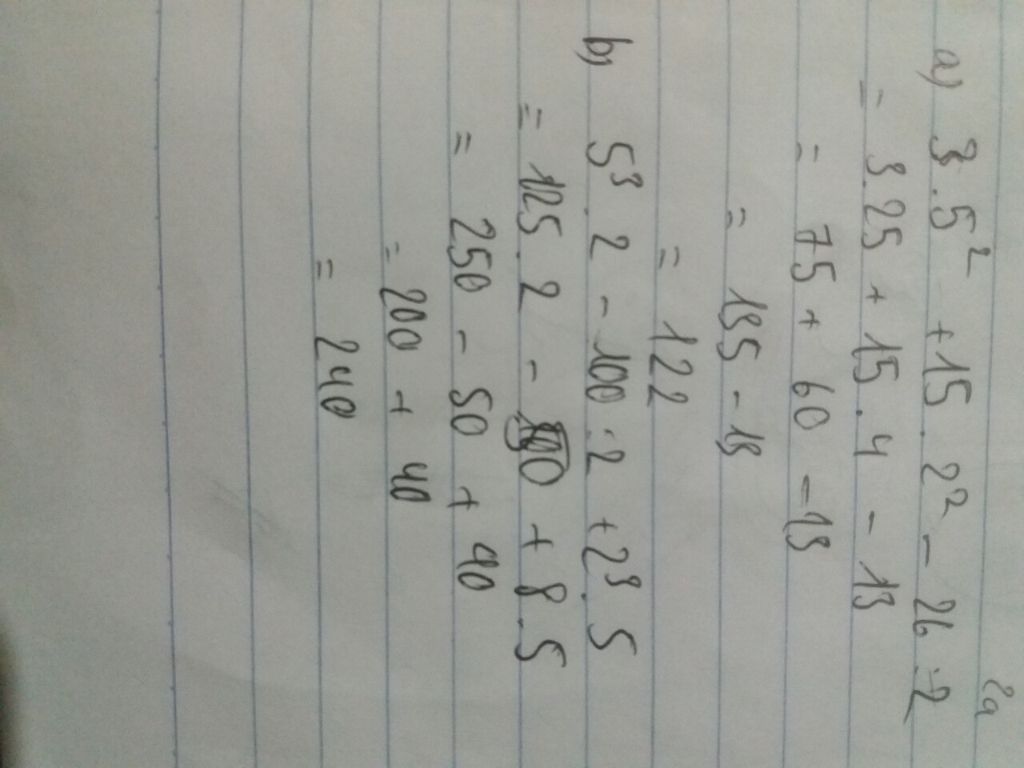 a) 3.5² + 15.2² - 26:2
= 3.25 + 15.4 - 13
= 75 + 60 - 13
= 135 - 13
= 122
b) 5³.2 - 100:2 + 2³.5
= 125.2 - 50 + 8.5
= 250 - 50 + 40
= 200 + 40
= 240